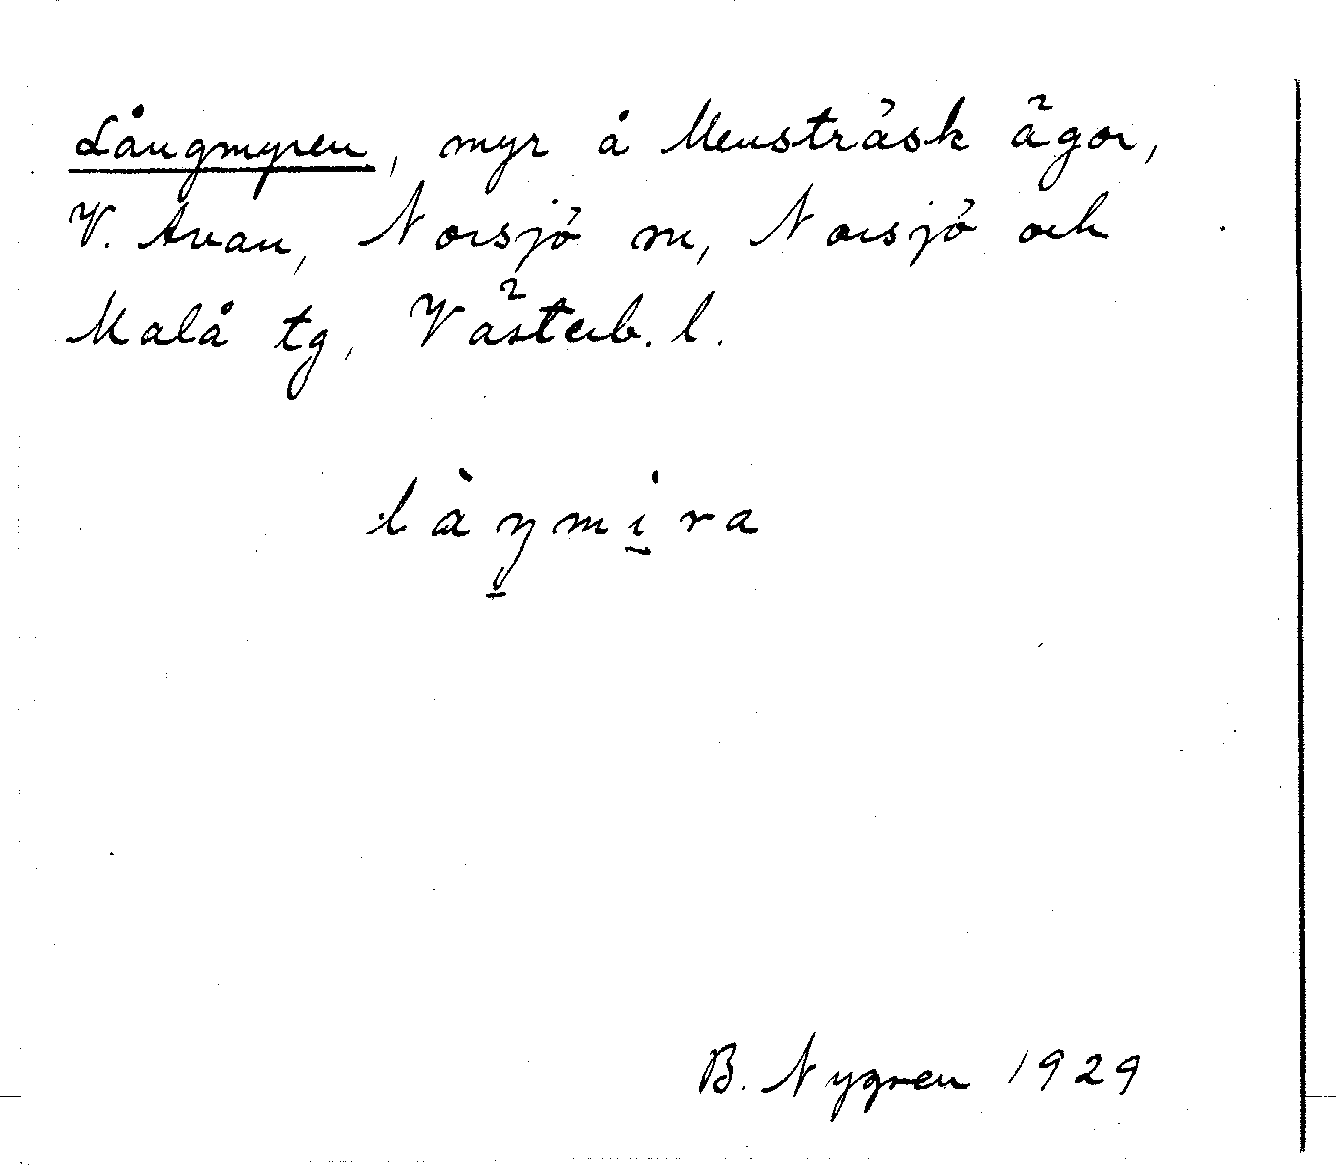 Långmyren, myr å Mensträsk ägor,
V. Avan, Norsjö sn, Norsjö och
Malå tg, Västerb. l.
làŋmi̱ra
B. Nygren 1929